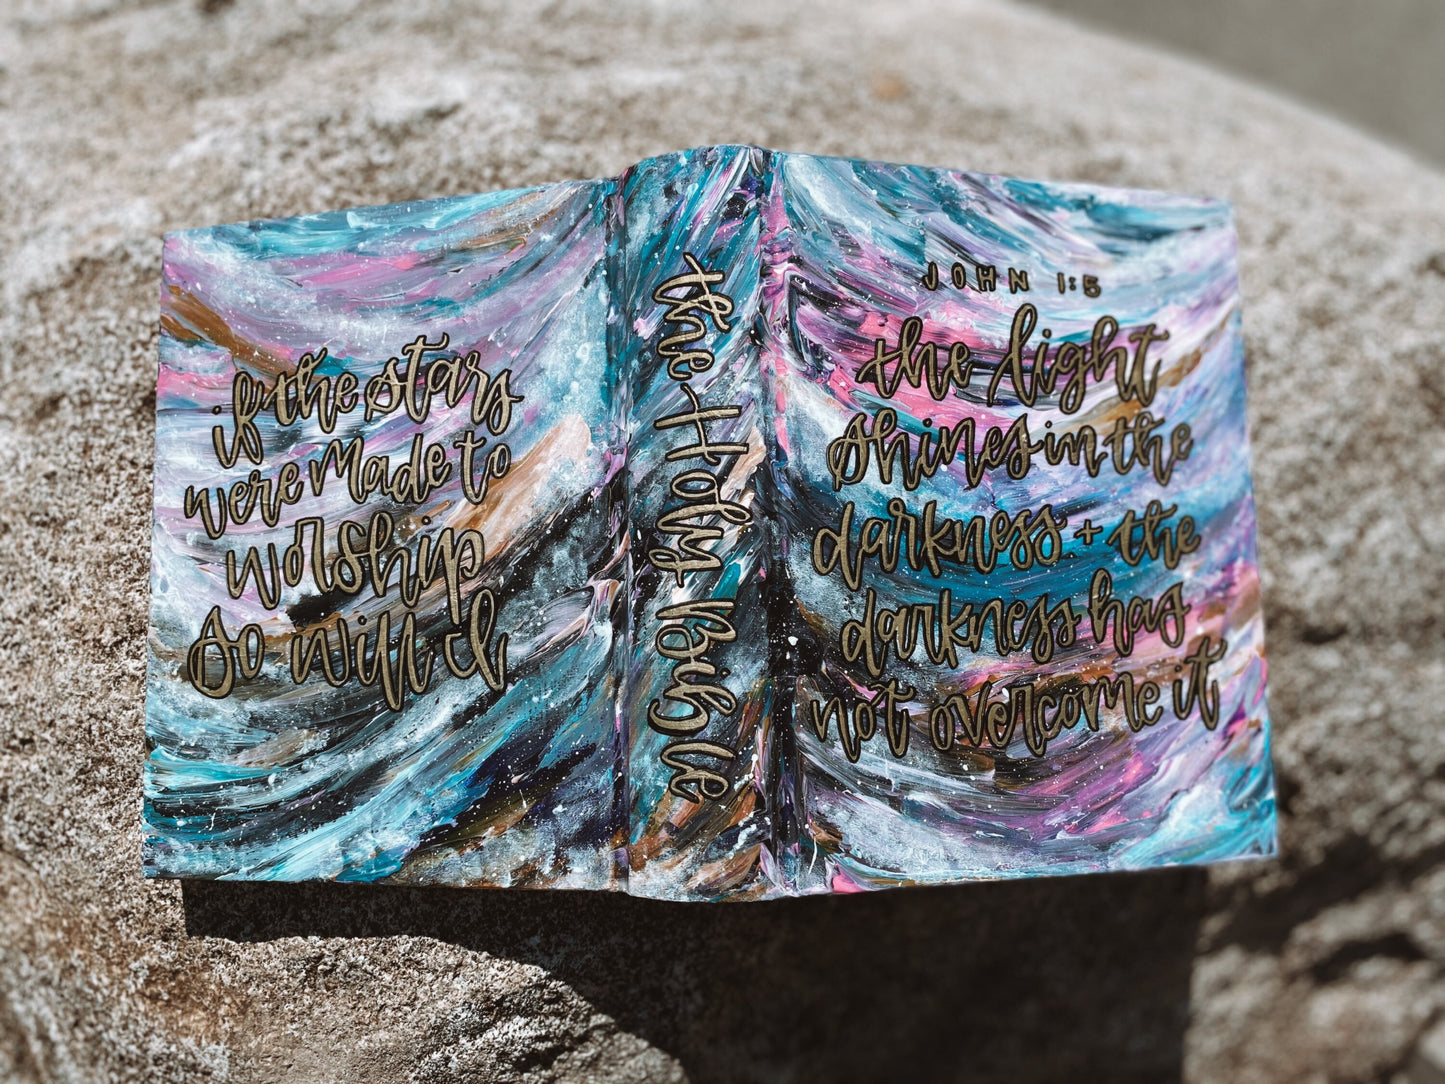 if the stars
were made to
worship
so will I
the Holy Bible
JOHN 1:5
the light
shines in the
darkness + the
darkness has
not overcome it